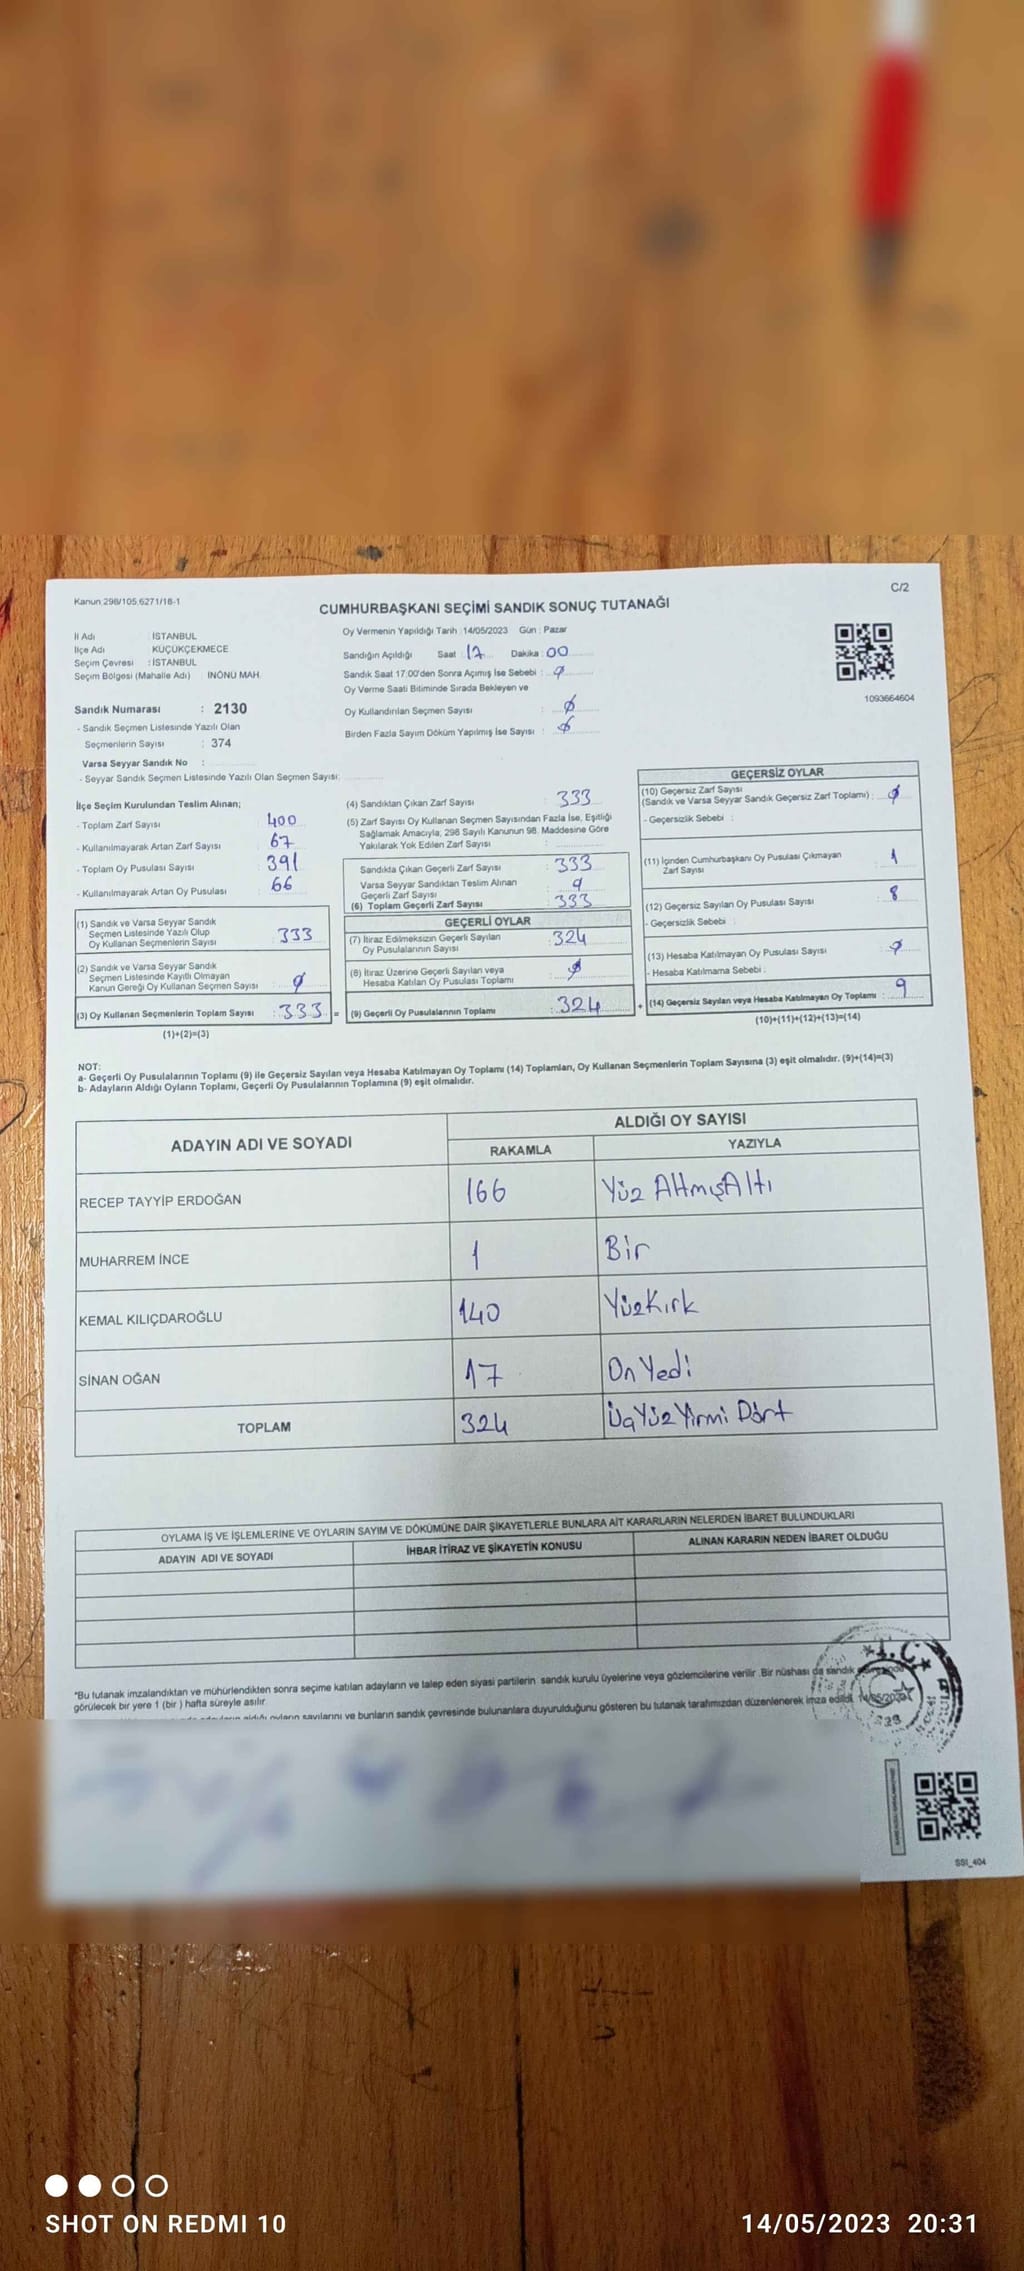 Kanun 298/105,6271/18-1
C/2
CUMHURBAŞKANI SEÇİMİ SANDIK SONUÇ TUTANAĞI
İl Adı : İSTANBUL
İlçe Adı : KÜÇÜKÇEKMECE
Seçim Çevresi : İSTANBUL
Seçim Bölgesi (Mahalle Adı) İNÖNÜ MAH.
Sandık Numarası : 2130
- Sandık Seçmen Listesinde Yazılı Olan
Seçmenlerin Sayısı : 374
Varsa Seyyar Sandık No :
- Seyyar Sandık Seçmen Listesinde Yazılı Olan Seçmen Sayısı:
Oy Vermenin Yapıldığı Tarih : 14/05/2023 Gün : Pazar
Sandığın Açıldığı Saat : 17 Dakika : 00
Sandık Saat 17:00'den Sonra Açımış İse Sebebi : 0
Oy Verme Saati Bitiminde Sırada Bekleyen ve
Oy Kullandırılan Seçmen Sayısı : 0
Birden Fazla Sayım Döküm Yapılmış İse Sayısı : 0
1093664604
İlçe Seçim Kurulundan Teslim Alınan;
- Toplam Zarf Sayısı : 400
- Kullanılmayarak Artan Zarf Sayısı : 67
- Toplam Oy Pusulası Sayısı : 391
- Kullanılmayarak Artan Oy Pusulası : 66
(1) Sandık ve Varsa Seyyar Sandık
Seçmen Listesinde Yazılı Olup
Oy Kullanan Seçmenlerin Sayısı : 333
(2) Sandık ve Varsa Seyyar Sandık
Seçmen Listesinde Kayıtlı Olmayan
Kanun Gereği Oy Kullanan Seçmen Sayısı : 0
(3) Oy Kullanan Seçmenlerin Toplam Sayısı : 333 =
(1)+(2)=(3)
(4) Sandıktan Çıkan Zarf Sayısı : 333
(5) Zarf Sayısı Oy Kullanan Seçmen Sayısından Fazla İse, Eşitliği
Sağlamak Amacıyla, 298 Sayılı Kanunun 98. Maddesine Göre
Yakılarak Yok Edilen Zarf Sayısı :
Sandıkta Çıkan Geçerli Zarf Sayısı : 333
Varsa Seyyar Sandıktan Teslim Alınan
Geçerli Zarf Sayısı : 0
(6) Toplam Geçerli Zarf Sayısı : 333
GEÇERLİ OYLAR
(7) İtiraz Edilmeksizin Geçerli Sayılan
Oy Pusulalarının Sayısı : 324
(8) İtiraz Üzerine Geçerli Sayılan veya
Hesaba Katılan Oy Pusulası Toplamı : 0
(9) Geçerli Oy Pusulalarının Toplamı : 324 +
GEÇERSİZ OYLAR
(10) Geçersiz Zarf Sayısı
(Sandık ve Varsa Seyyar Sandık Geçersiz Zarf Toplamı) : 0
- Geçersizlik Sebebi :
(11) İçinden Cumhurbaşkanı Oy Pusulası Çıkmayan
Zarf Sayısı : 1
(12) Geçersiz Sayılan Oy Pusulası Sayısı : 8
- Geçersizlik Sebebi :
(13) Hesaba Katılmayan Oy Pusulası Sayısı : 0
- Hesaba Katılmama Sebebi :
(14) Geçersiz Sayılan veya Hesaba Katılmayan Oy Toplamı : 9
(10)+(11)+(12)+(13)=(14)
NOT:
a- Geçerli Oy Pusulalarının Toplamı (9) ile Geçersiz Sayılan veya Hesaba Katılmayan Oy Toplamı (14) Toplamları, Oy Kullanan Seçmenlerin Toplam Sayısına (3) eşit olmalıdır. (9)+(14)=(3)
b- Adayların Aldığı Oyların Toplamı, Geçerli Oy Pusulalarının Toplamına (9) eşit olmalıdır.
ADAYIN ADI VE SOYADI
ALDIĞI OY SAYISI
RAKAMLA YAZIYLA
RECEP TAYYİP ERDOĞAN 166 Yüz AltmışAltı
MUHARREM İNCE 1 Bir
KEMAL KILIÇDAROĞLU 140 YüzKırk
SİNAN OĞAN 17 On Yedi
TOPLAM 324 ÜçYüz Yirmi Dört
OYLAMA İŞ VE İŞLEMLERİNE VE OYLARIN SAYIM VE DÖKÜMÜNE DAİR ŞİKAYETLERLE BUNLARA AİT KARARLARIN NELERDEN İBARET BULUNDUKLARI
ADAYIN ADI VE SOYADI İHBAR İTİRAZ VE ŞİKAYETİN KONUSU ALINAN KARARIN NEDEN İBARET OLDUĞU
*Bu tutanak imzalandıktan ve mühürlendikten sonra seçime katılan adayların ve talep eden siyasi partilerin sandık kurulu üyelerine veya gözlemcilerine verilir. Bir nüshası da sandık
görülecek bir yere 1 (bir ) hafta süreyle asılır.
aldığı oyların sayılarını ve bunların sandık çevresinde bulunanlara duyurulduğunu gösteren bu tutanak tarafımızdan düzenlenerek imza edildi. 14/05/2023
T.C.
SSI_404
SHOT ON REDMI 10
14/05/2023 20:31